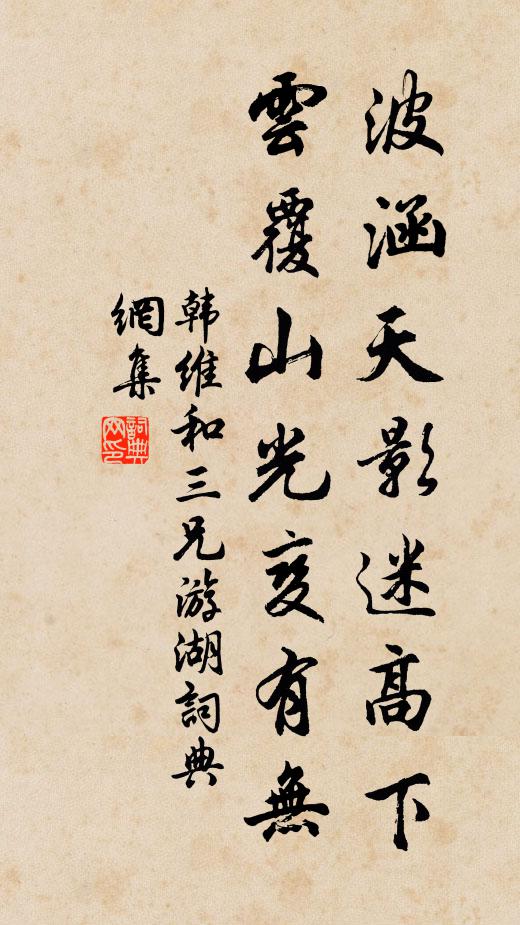 波涵天影迷高下
雲覆山光变有無
韩維和三兄游湖詞典
網集
詞典
网印